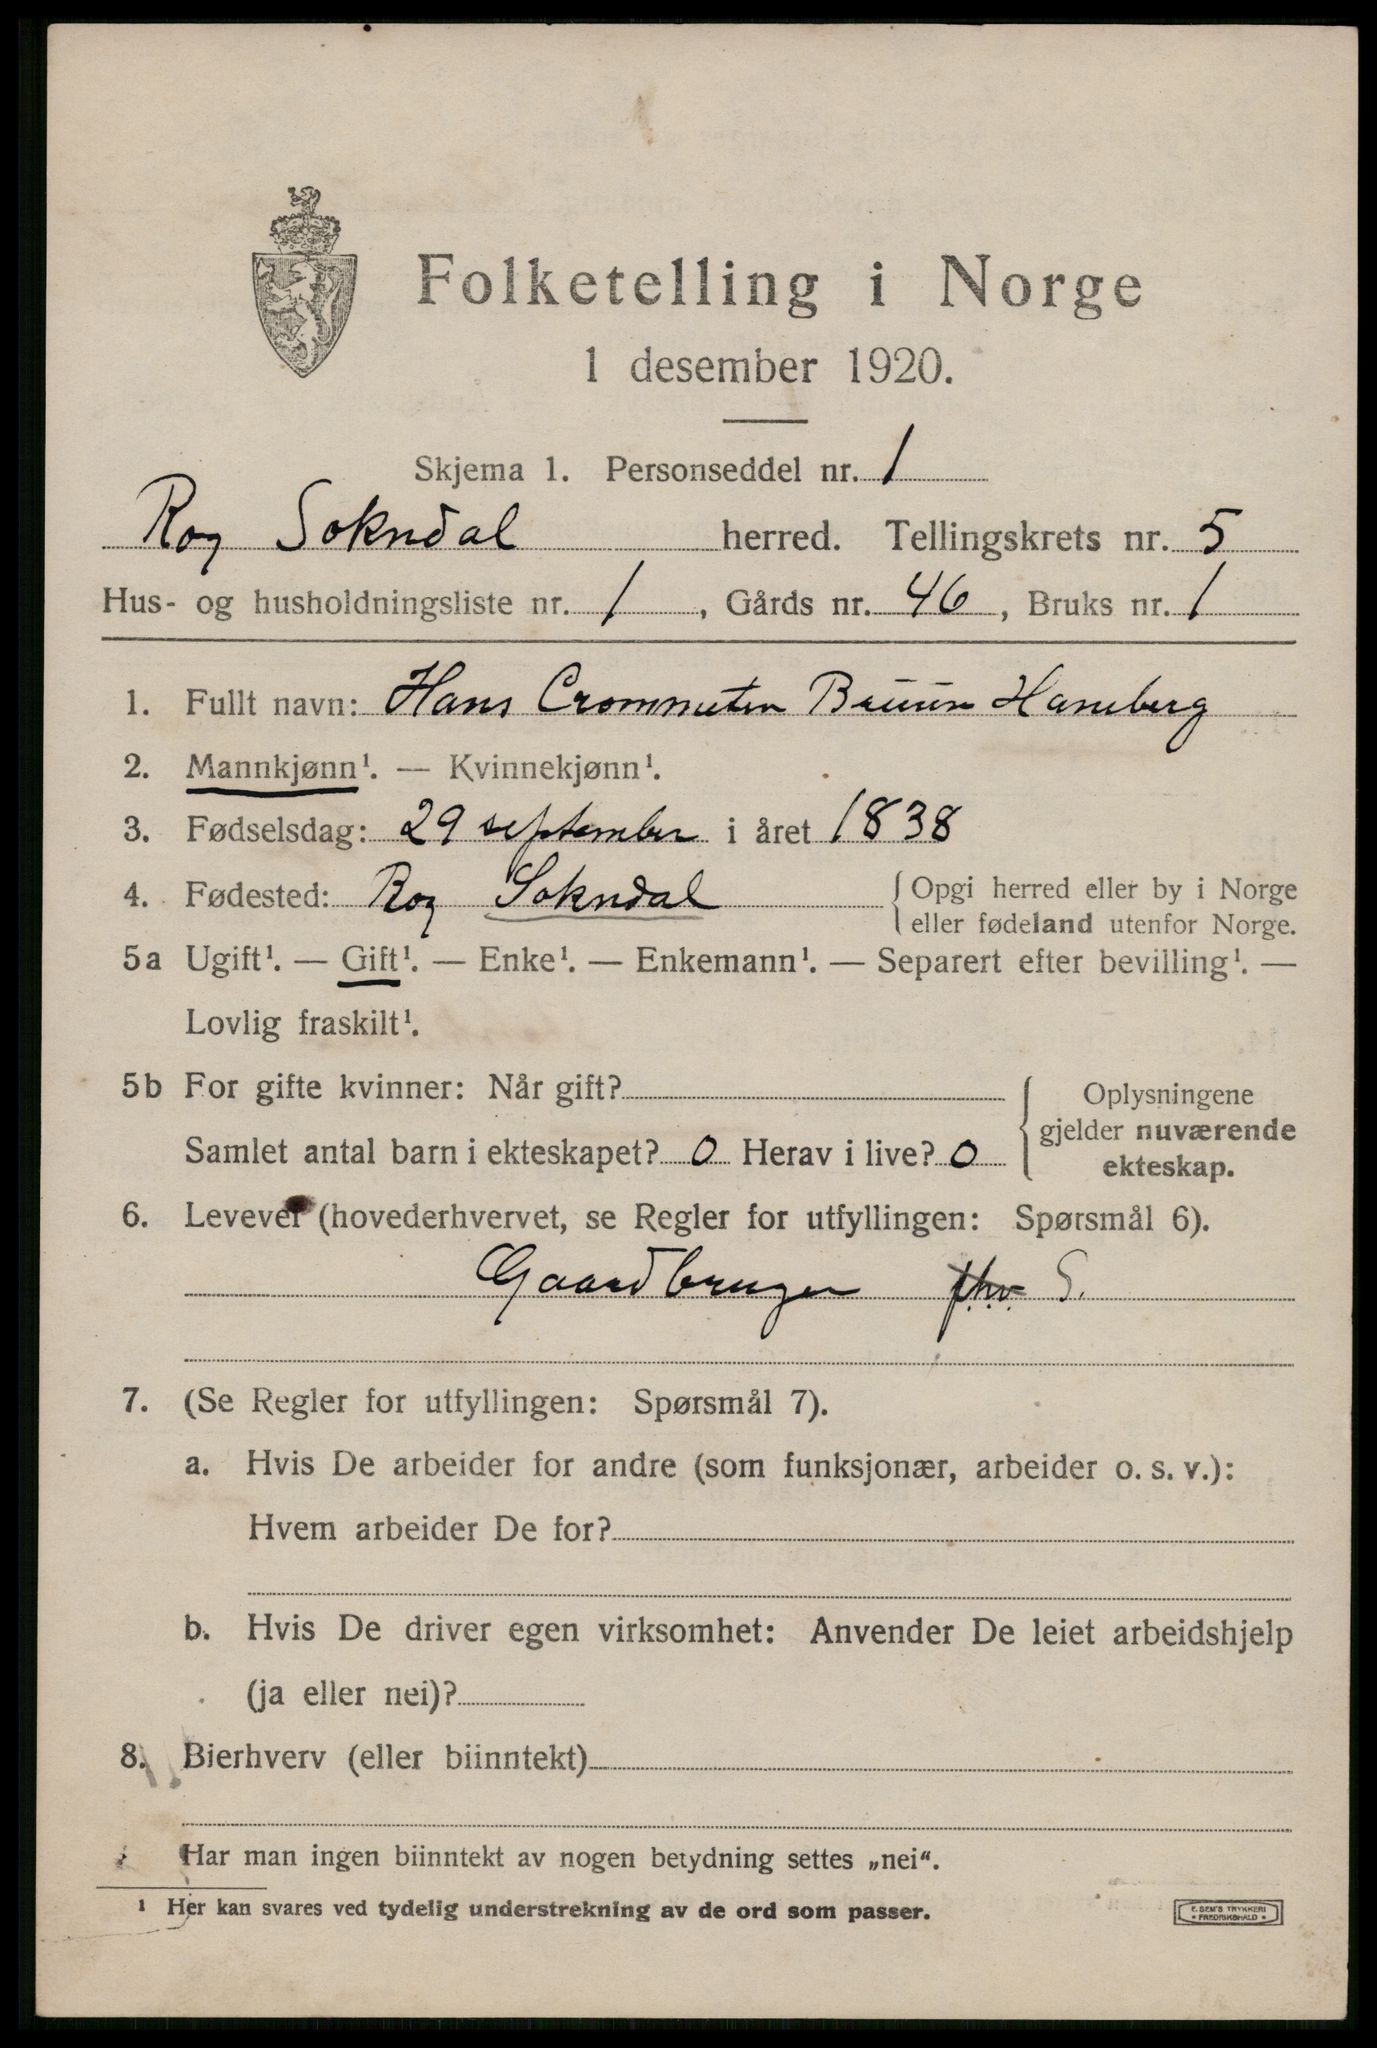 Folketelling i Norge
1 desember 1920.
Skjema 1. Personseddel nr. 1
Rog Sokndal herred. Tellingskrets nr. 5
Hus- og husholdningsliste nr. 1, Gårds nr. 46, Bruks nr. 1
1. Fullt navn: Hans Bruun Haneberg
2. Mannkjønn¹. — Kvinnekjønn¹.
3. Fødselsdag: 29 september i året 1838
4. Fødested: Rog Sokndal { Opgi herred eller by i Norge
eller fødeland utenfor Norge.
5a Ugift¹. — Gift¹. — Enke¹. — Enkemann¹. — Separert efter bevilling¹. —
Lovlig fraskilt¹.
5b For gifte kvinner: Når gift?
Samlet antal barn i ekteskapet? 0 Herav i live? 0
{ Oplysningene
gjelder nuværende
ekteskap.
6. Levevei (hovederhvervet, se Regler for utfyllingen: Spørsmål 6).
Gaardbruger S.
7. (Se Regler for utfyllingen: Spørsmål 7).
a. Hvis De arbeider for andre (som funksjonær, arbeider o. s. v.):
Hvem arbeider De for?
b. Hvis De driver egen virksomhet: Anvender De leiet arbeidshjelp
(ja eller nei)?
8. Bierhverv (eller biinntekt)
Har man ingen biinntekt av nogen betydning settes „nei“.
¹ Her kan svares ved tydelig understrekning av de ord som passer.
E. SEM'S TRYKKERI
* FREDRIKSHALD *